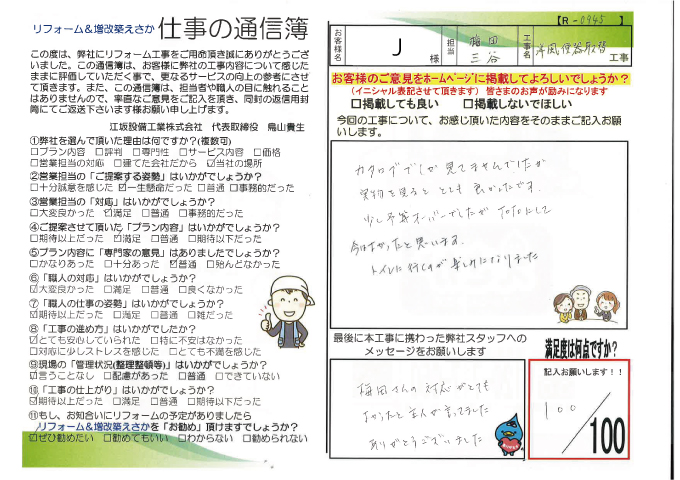 リフォーム&増改築えさか 仕事の通信簿
この度は、弊社にリフォーム工事をご用命頂き誠にありがとうござ
いました。この通信簿は、お客様に弊社の工事内容について感じた
ままに評価していただく事で、更なるサービスの向上の参考にさせ
て頂きます。また、この通信簿は、担当者や職人の目に触れること
はありませんので、率直なご意見をご記入を頂き、同封の返信用封
筒にてご返送下さいます様お願い申し上げます。
江坂設備工業株式会社 代表取締役 鳥山貴生
①弊社を選んで頂いた理由は何ですか?(複数可)
□プラン内容 □評判 □専門性 □サービス内容 □価格
□営業担当の対応 □建てた会社だから ☑当社の場所
②営業担当の「ご提案する姿勢」はいかがでしょうか?
□十分誠意を感じた ☑一生懸命だった □普通 □事務的だった
③営業担当の「対応」はいかがでしょうか?
□大変良かった ☑満足 □普通 □事務的だった
④ご提案させて頂いた「プラン内容」はいかがでしょうか?
□期待以上だった ☑満足 □普通 □期待以下だった
⑤プラン内容に「専門家の意見」はありましたでしょうか?
□かなりあった □十分あった ☑普通 □殆んどなかった
⑥「職人の対応」はいかがでしょうか?
☑大変良かった □満足 □普通 □良くなかった
⑦「職人の仕事の姿勢」はいかがでしょうか?
☑期待以上だった □満足 □普通 □雑だった
⑧「工事の進め方」はいかがでしたか?
☑とても安心していられた □特に不安はなかった
□対応に少しストレスを感じた □とても不満を感じた
⑨現場の「管理状況(整理整頓等)」はいかがでしょうか?
☑言うことなし □配慮があった □普通 □できていない
⑩「工事の仕上がり」はいかがでしょうか?
☑期待以上だった □満足 □普通 □期待以下だった
⑪もし、お知合いにリフォームの予定がありましたら
リフォーム&増改築えさかを「お勧め」頂けますでしょうか?
☑ぜひ勧めたい □勧めてもいい □わからない □勧められない
【R-0945 】
お客様名 J 様 担当 梅田 三谷 工事名 洋風便器取替 工事
お客様のご意見をホームページに掲載してよろしいでしょうか?
(イニシャル表記させて頂きます) 皆さまのお声が励みになります
□掲載しても良い □掲載しないでほしい
今回の工事について、お感じ頂いた内容をそのままご記入お願
いします。
カタログでしか見てませんでしたが
実物を見ると とても良かったです。
少し予算オーバーでしたが TOTOにして
今はよかったと思います。
トイレに行くのが楽しみになりました
最後に本工事に携わった弊社スタッフへの
メッセージをお願いします
梅田さんの対応がとても
よかったと主人が言ってました
ありがとうございました
満足度は何点ですか?
記入お願いします!!
100
/100